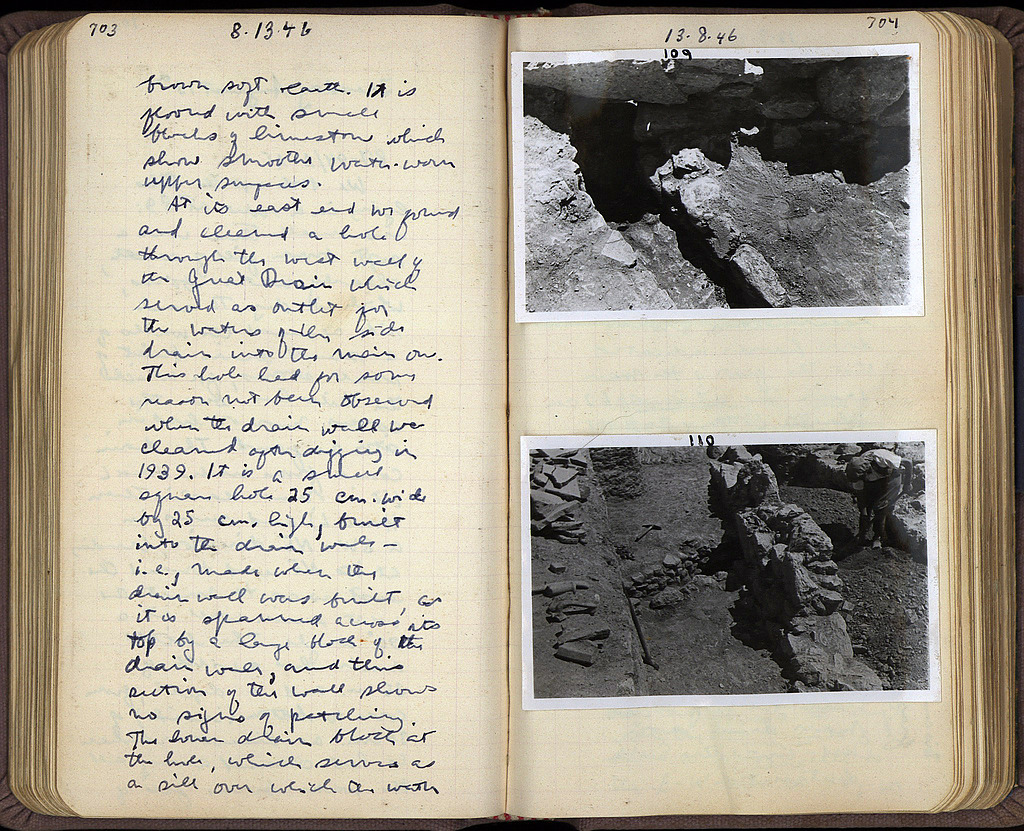 703
8.13.46
brown soft earth. It is
floored with small
blocks of limestone which
show smooth water-worn
upper surfaces.
At its east end we found
and cleared a hole
through the west wall of
the Great Drain which
served as outlet for
the waters of the side
drain into the main one.
This hole had for some
reason not been observed
when the drain wall was
cleaned after digging in
1939. It is a small
square hole 25 cm. wide
by 25 cm. high, built
into the drain wall –
i.e., made when the
drain wall was built, as
it is spanned across its
top by a large block of the
drain wall, and this
section of the wall shows
no signs of patching.
The lower drain block at
the hole, which serves as
a sill over which the water
704
13.8.46
109
110